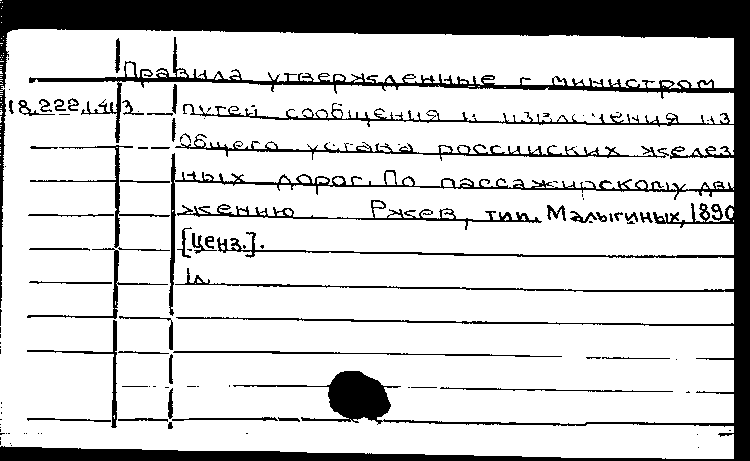 Правила утвержденные г министром
18.222.1.413 путей сообщения и извлечения из
Общего устава российских желез-
ных дорог. По пассажирскому дви
жению. Ржев, тип. Малыгиных, 1890
[ценз.].
1л.